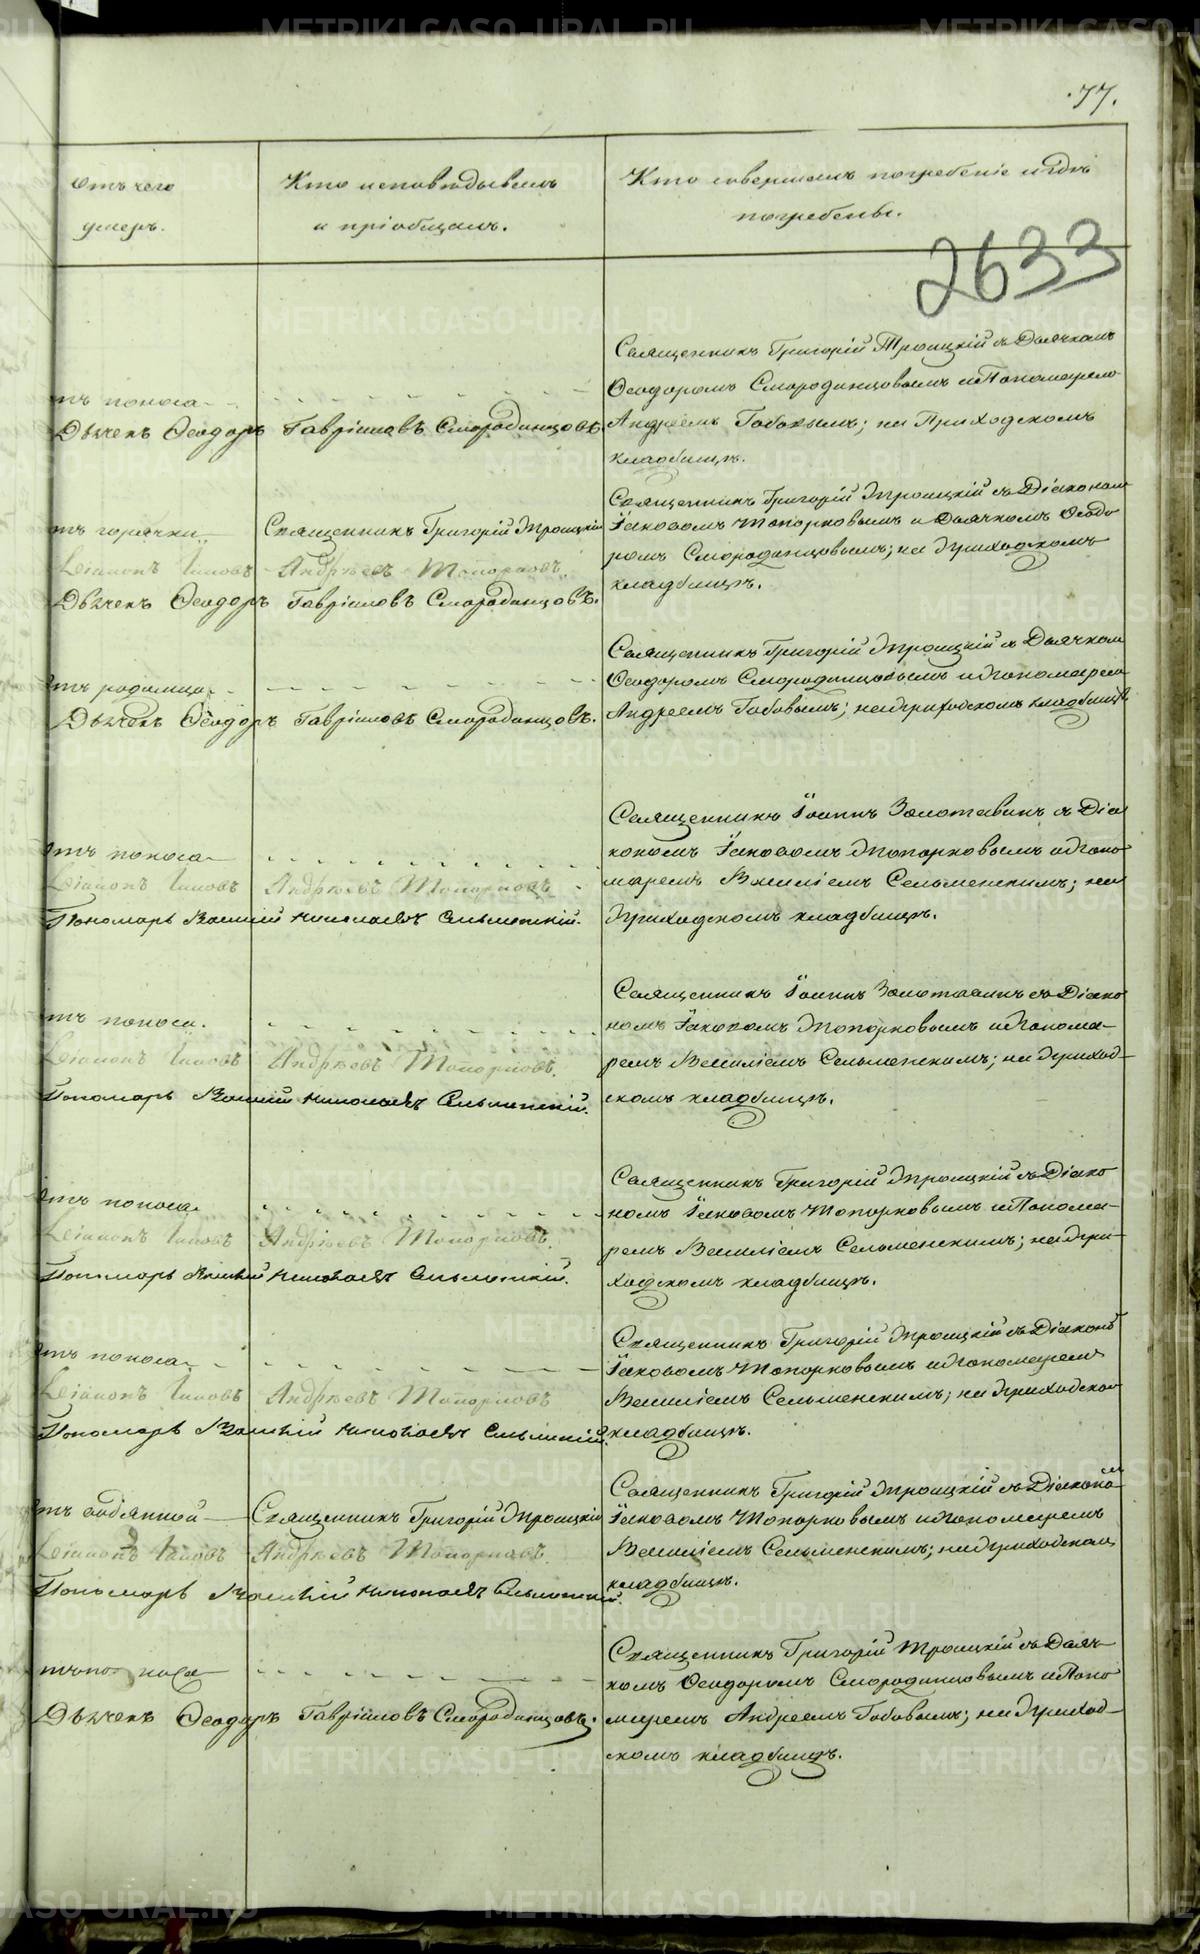 77.
отъ чего
умеръ.
Кто исповѣдывалъ
и пріобщалъ.
Кто совершалъ погребеніе и гдѣ
погребены.
2633
Священникъ Григорій Троицкій съ Дьячкомъ
Ѳеодоромъ Смородинцовымъ и Пономаремъ
Андреемъ Бабовымъ; на Приходскомъ
кладбищѣ.
отъ поноса
Дьячекъ Ѳеодоръ Гавріиловъ Смородинцовъ.
Священникъ Григорій Троицкій съ Діакономъ
Іаковомъ Топорковымъ и Дьячкомъ Ѳеодо-
ромъ Смородинцовымъ; на Приходскомъ
кладбищѣ.
отъ горячки. Священникъ Григорій Троицкій
Діаконъ Іаковъ Андрѣевъ Топорковъ.
Дьячекъ Ѳеодоръ Гавріиловъ Смородинцовъ.
Священникъ Григорій Троицкій съ Дьячкомъ
Ѳеодоромъ Смородинцовымъ и Пономаремъ
Андреемъ Бабовымъ; на Приходскомъ кладбищѣ
отъ родимца
Дьячекъ Ѳеодоръ Гавріиловъ Смородинцовъ.
Священникъ Іоаннъ Золотавинъ съ Діа
кономъ Іаковомъ Топорковымъ и Поно-
маремъ Василіемъ Сельменскимъ; на
Приходскомъ кладбищѣ.
отъ поноса
Діаконъ Іаковъ Андрѣевъ Топорковъ
Пономарь Василій Николаевъ Сельменскій.
Священникъ Іоаннъ Золотавинъ съ Діако
номъ Іаковомъ Топорковымъ и Понома-
ремъ Василіемъ Сельменскимъ; на Приход-
скомъ кладбищѣ.
отъ поноса.
Діаконъ Іаковъ Андрѣевъ Топорковъ.
Пономарь Василій Николаевъ Сельменскій.
Священникъ Григорій Троицкій съ Діако
номъ Іаковомъ Топорковымъ и Понома-
ремъ Василіемъ Сельменскимъ; на При-
ходскомъ кладбищѣ.
отъ поноса
Діаконъ Іаковъ Андрѣевъ Топорковъ.
Пономарь Василій Николаевъ Сельменскій.
Священникъ Григорій Троицкій съ Діаконо
Іаковомъ Топорковымъ и Пономаремъ
Василіемъ Сельменскимъ; на Приходском
кладбищѣ.
отъ поноса
Діаконъ Іаковъ Андрѣевъ Топорковъ
Пономарь Василій Николаевъ Сельменскій.
Священникъ Григорій Троицкій съ Діакономъ
Іаковомъ Топорковымъ и Пономаремъ
Василіемъ Сельменскимъ; на Приходском
кладбищѣ.
отъ водянной Священникъ Григорій Троицкій
Діаконъ Іаковъ Андрѣевъ Топорковъ.
Пономарь Василій Николаевъ Сельменскій.
Священникъ Григорій Троицкій съ Дьяч-
комъ Ѳеодоромъ Смородинцовымъ и Поно
маремъ Андреемъ Бабовымъ; на Приход-
скомъ кладбищѣ.
отъ поноса
Дьячекъ Ѳеодоръ Гавріиловъ Смородинцовъ.